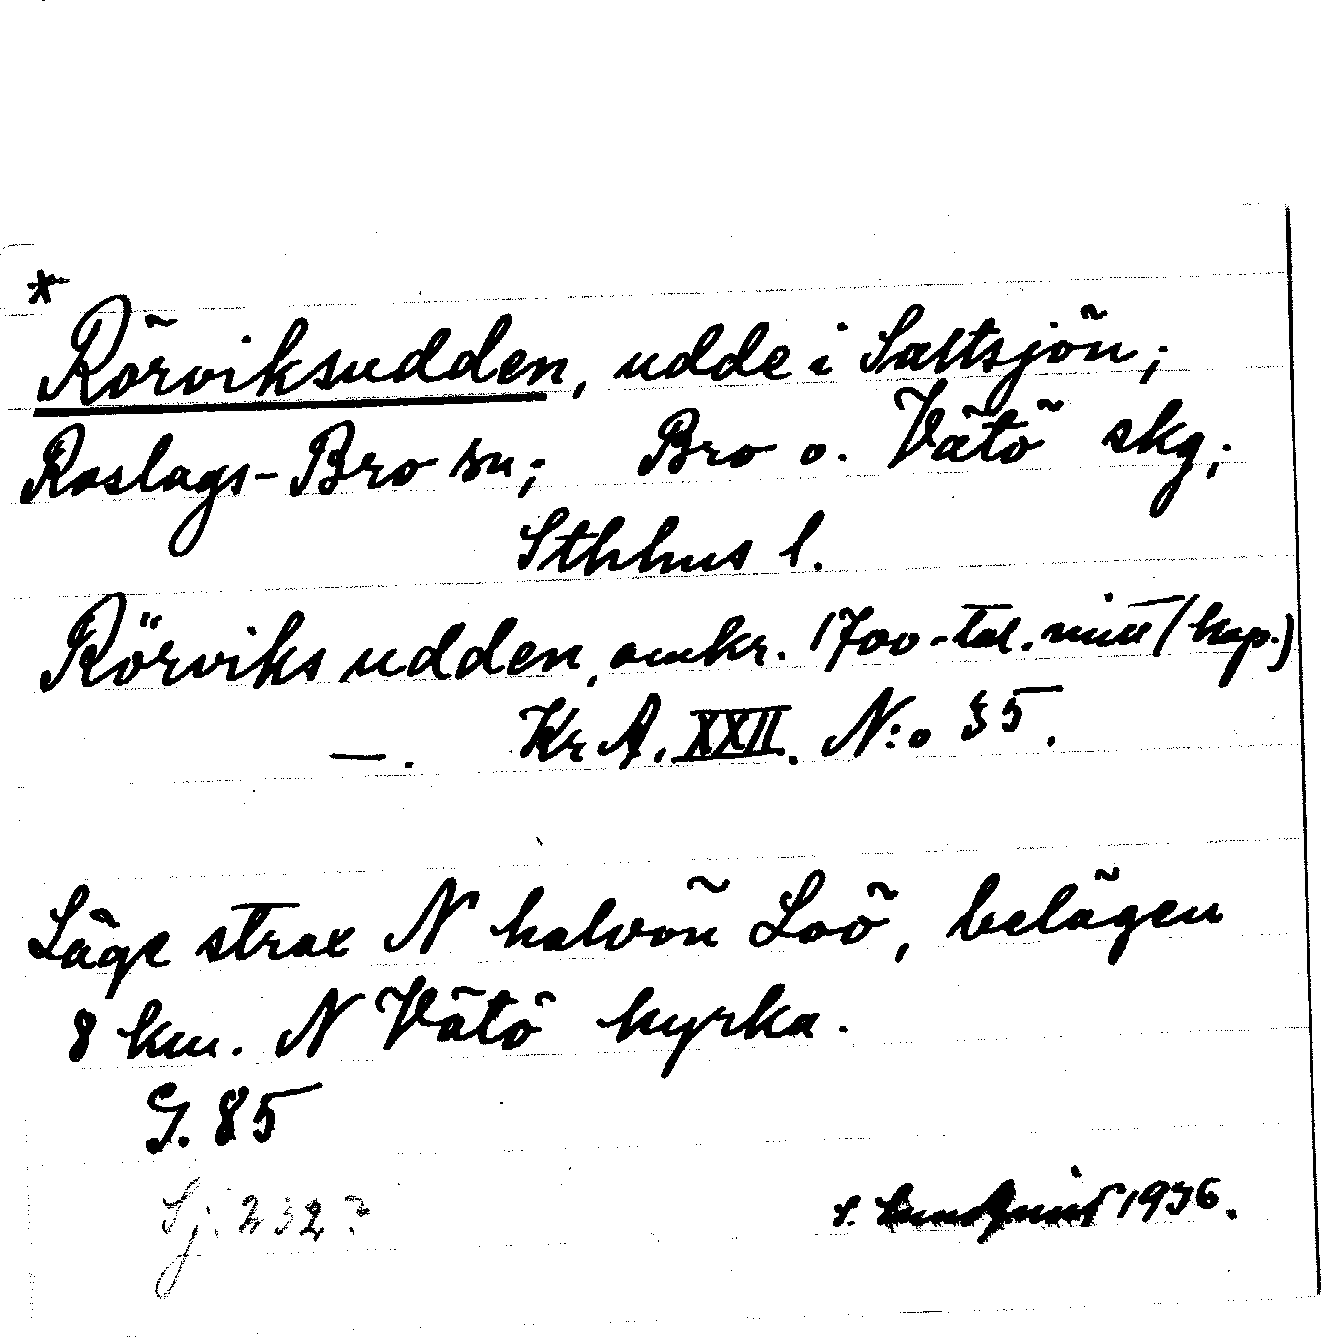 *
Rörviksudden, udde i Saltsjön;
Roslags-Bro sn; Bro o. Vätö skg;
Sthlms l.
Rörviks udden, omkr. 1700-tal. mitt (kop.)
—. Kr A. XXII. N:o 35.
Läge strax N halvön Loö, belägen
8 km. N Vätö kyrka.
G. 85
Sj. 232?
S. Lundqvist 1936.